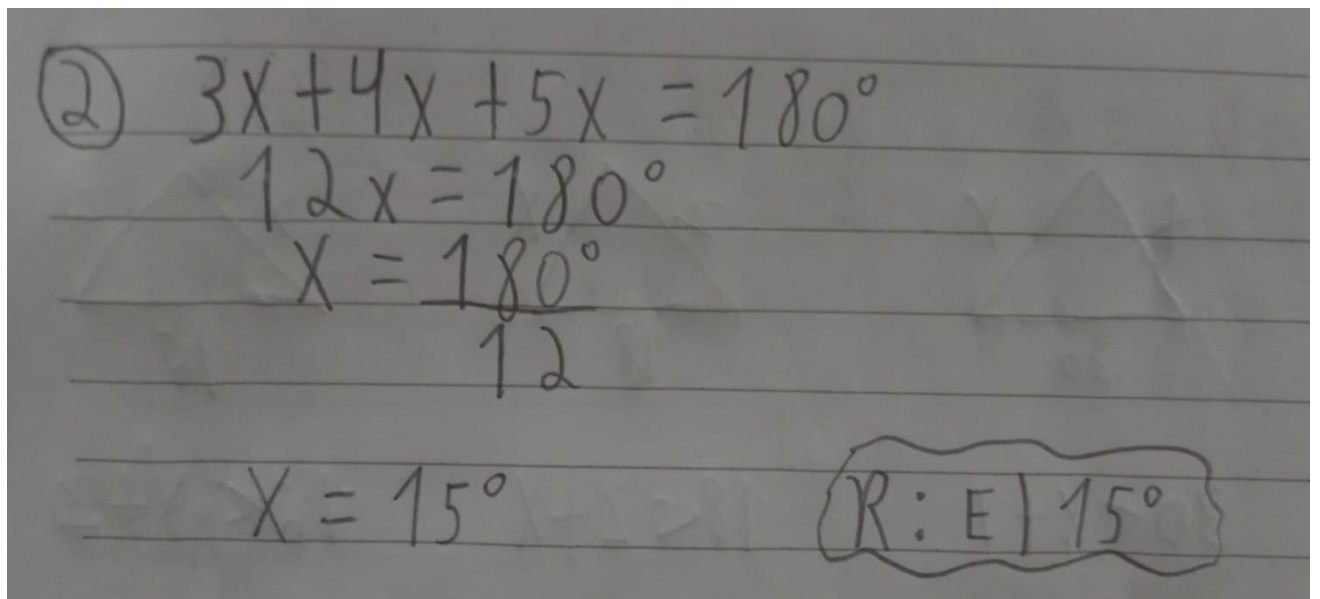 ② 3x+4x+5x=180°
12x=180°
x=180°
12
x=15°
R: E) 15°